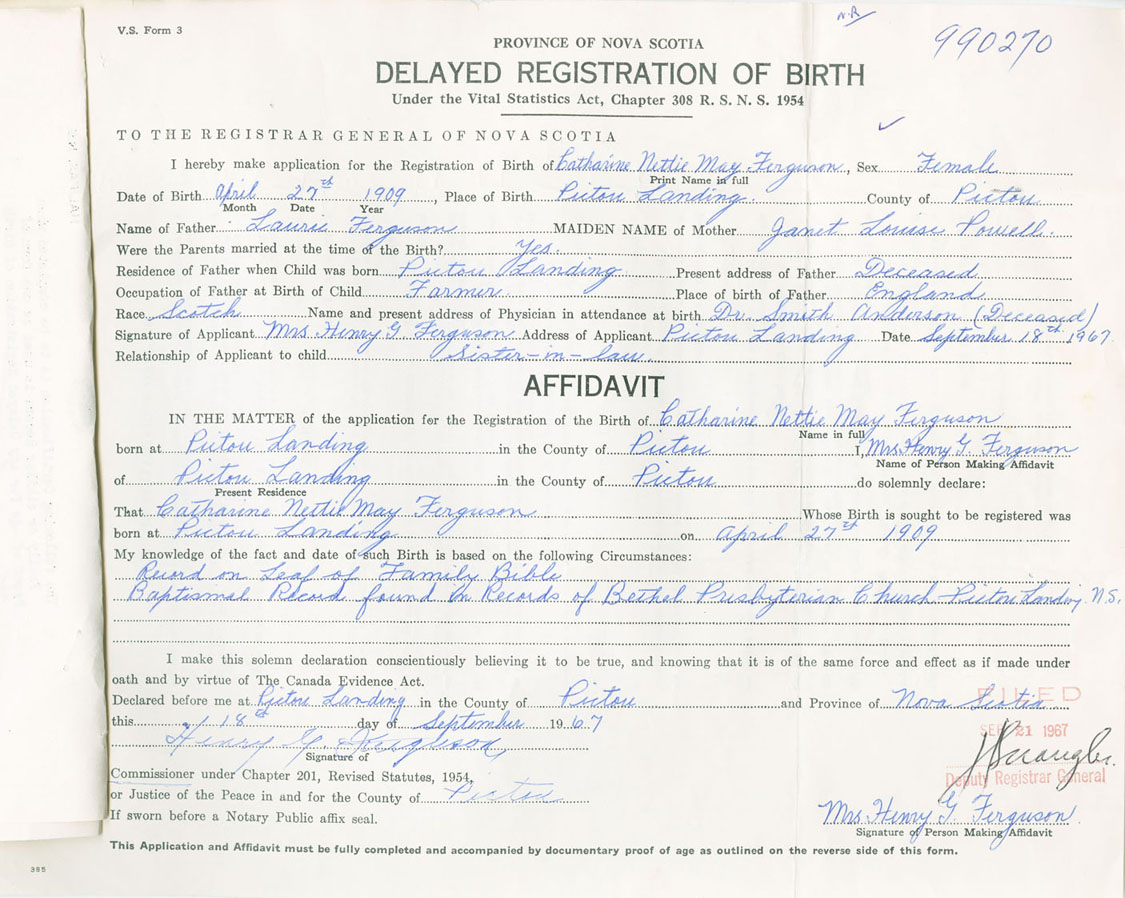 V.S. Form 3
N.R
990270
PROVINCE OF NOVA SCOTIA
DELAYED REGISTRATION OF BIRTH
Under the Vital Statistics Act, Chapter 308 R. S. N. S. 1954
TO THE REGISTRAR GENERAL OF NOVA SCOTIA
I hereby make application for the Registration of Birth of Catharine Nettie May Ferguson, Sex Female
Print Name in full
Date of Birth April 27th 1909, Place of Birth Pictou Landing. County of Pictou
Month Date Year
Name of Father Laurie Ferguson MAIDEN NAME of Mother Janet Louise Powell.
Were the Parents married at the time of the Birth? Yes.
Residence of Father when Child was born Pictou Landing Present address of Father Deceased
Occupation of Father at Birth of Child Farmer Place of birth of Father England
Race Scotch Name and present address of Physician in attendance at birth Dr. Smith Anderson (Deceased)
Signature of Applicant Mrs. Henry G Ferguson Address of Applicant Pictou Landing Date September 18th 1967
Relationship of Applicant to child Sister-in-law.
AFFIDAVIT
IN THE MATTER of the application for the Registration of the Birth of Catharine Nettie May Ferguson
Name in full
born at Pictou Landing in the County of Pictou I, Mrs. Henry G. Ferguson
Name of Person Making Affidavit
of Pictou Landing in the County of Pictou do solemnly declare:
Present Residence
That Catharine Nettie May Ferguson Whose Birth is sought to be registered was
born at Pictou Landing on April 27th 1909
My knowledge of the fact and date of such Birth is based on the following Circumstances:
Record on Leaf of Family Bible
Baptismal Record found in Records of Bethel Presbyterian Church Pictou Landing. N.S.
I make this solemn declaration conscientiously believing it to be true, and knowing that it is of the same force and effect as if made under
oath and by virtue of The Canada Evidence Act.
Declared before me at Pictou Landing in the County of Pictou and Province of Nova Scotia
FILED
this 18th day of September 1967
SEP 21 1967
Henry G. Ferguson
Signature of
Deputy Registrar General
Commissioner under Chapter 201, Revised Statutes, 1954,
or Justice of the Peace in and for the County of Pictou
Mrs. Henry G. Ferguson
If sworn before a Notary Public affix seal.
Signature of Person Making Affidavit
This Application and Affidavit must be fully completed and accompanied by documentary proof of age as outlined on the reverse side of this form.
385